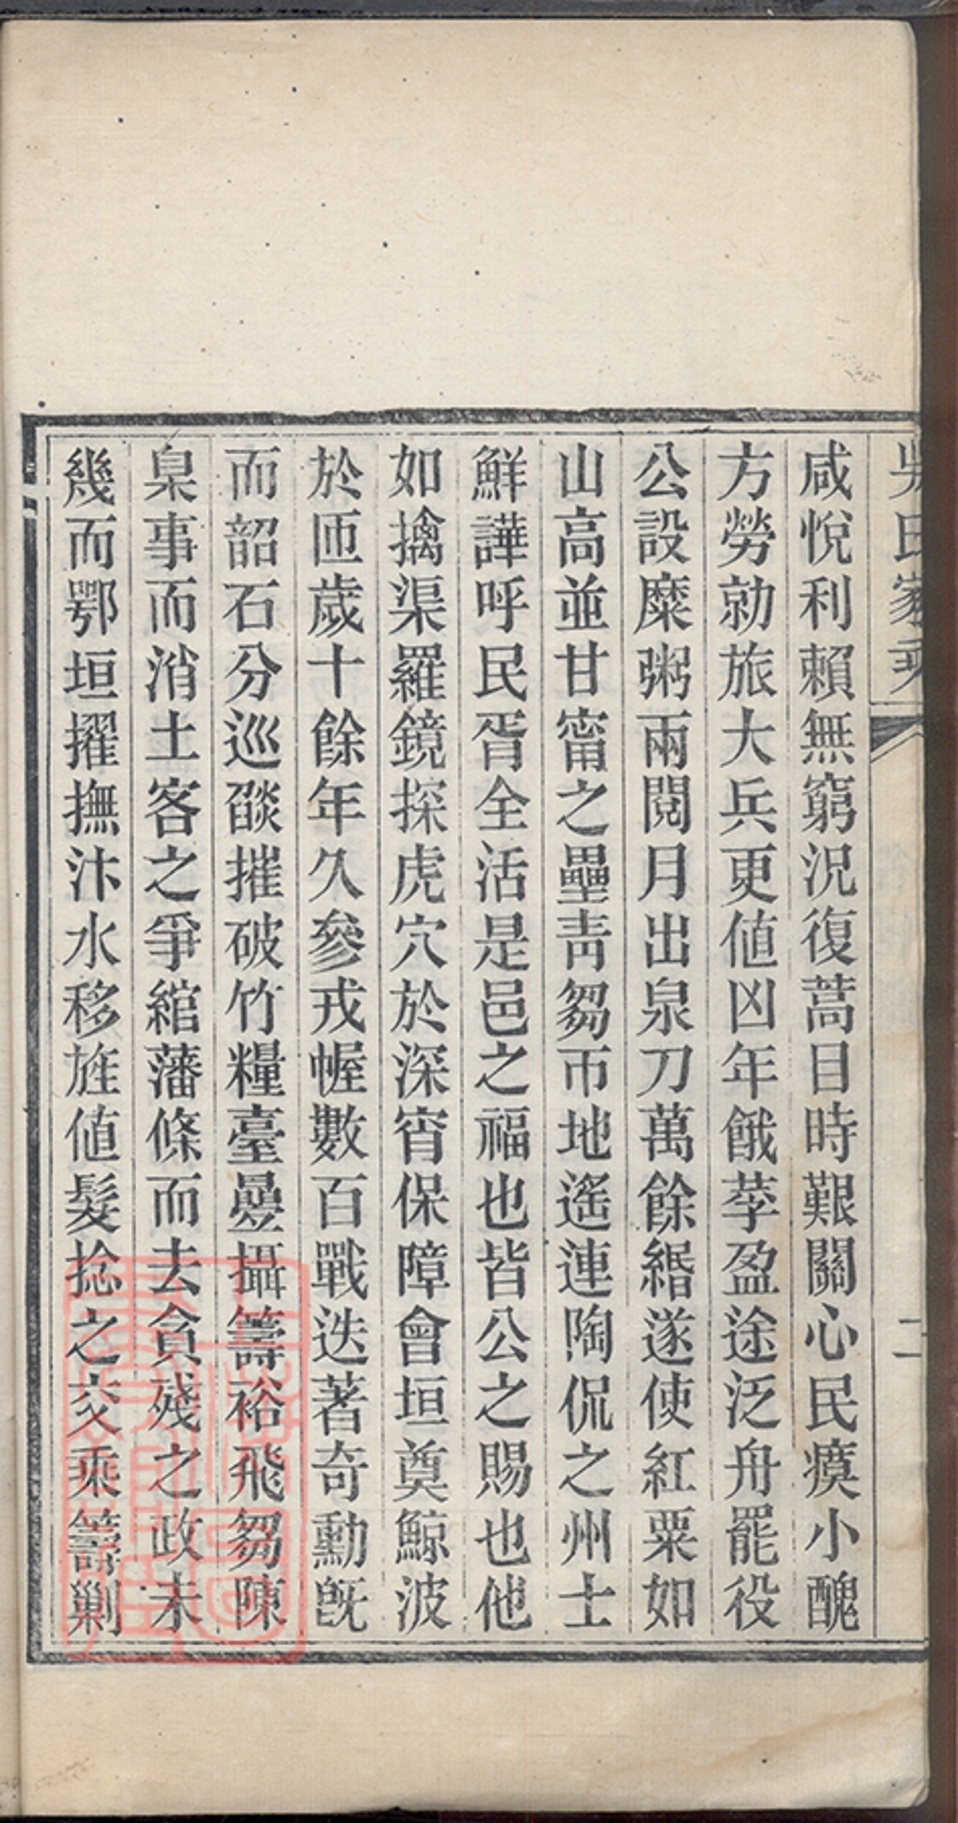 吳氏家乘
二
咸悅利賴無窮況復蒿目時艱關心民瘼小醜
方勞勍旅大兵更値凶年餓莩盈途泛舟罷役
公設糜粥兩閱月出泉刀萬餘緡遂使紅粟如
山高並甘甯之壘青芻帀地遙連陶侃之州士
鮮譁呼民胥全活是邑之福也皆公之賜也他
如擒渠羅鏡探虎穴於深宵保障會垣奠鯨波
於匝歲十餘年久參戎幄數百戰迭著奇勳旣
而韶石分巡燄摧破竹糧臺曡攝籌裕飛芻陳
臬事而消土客之爭綰藩條而去貪殘之政未
幾而鄂垣擢撫汴水移旌値髮捻之交乘籌剿